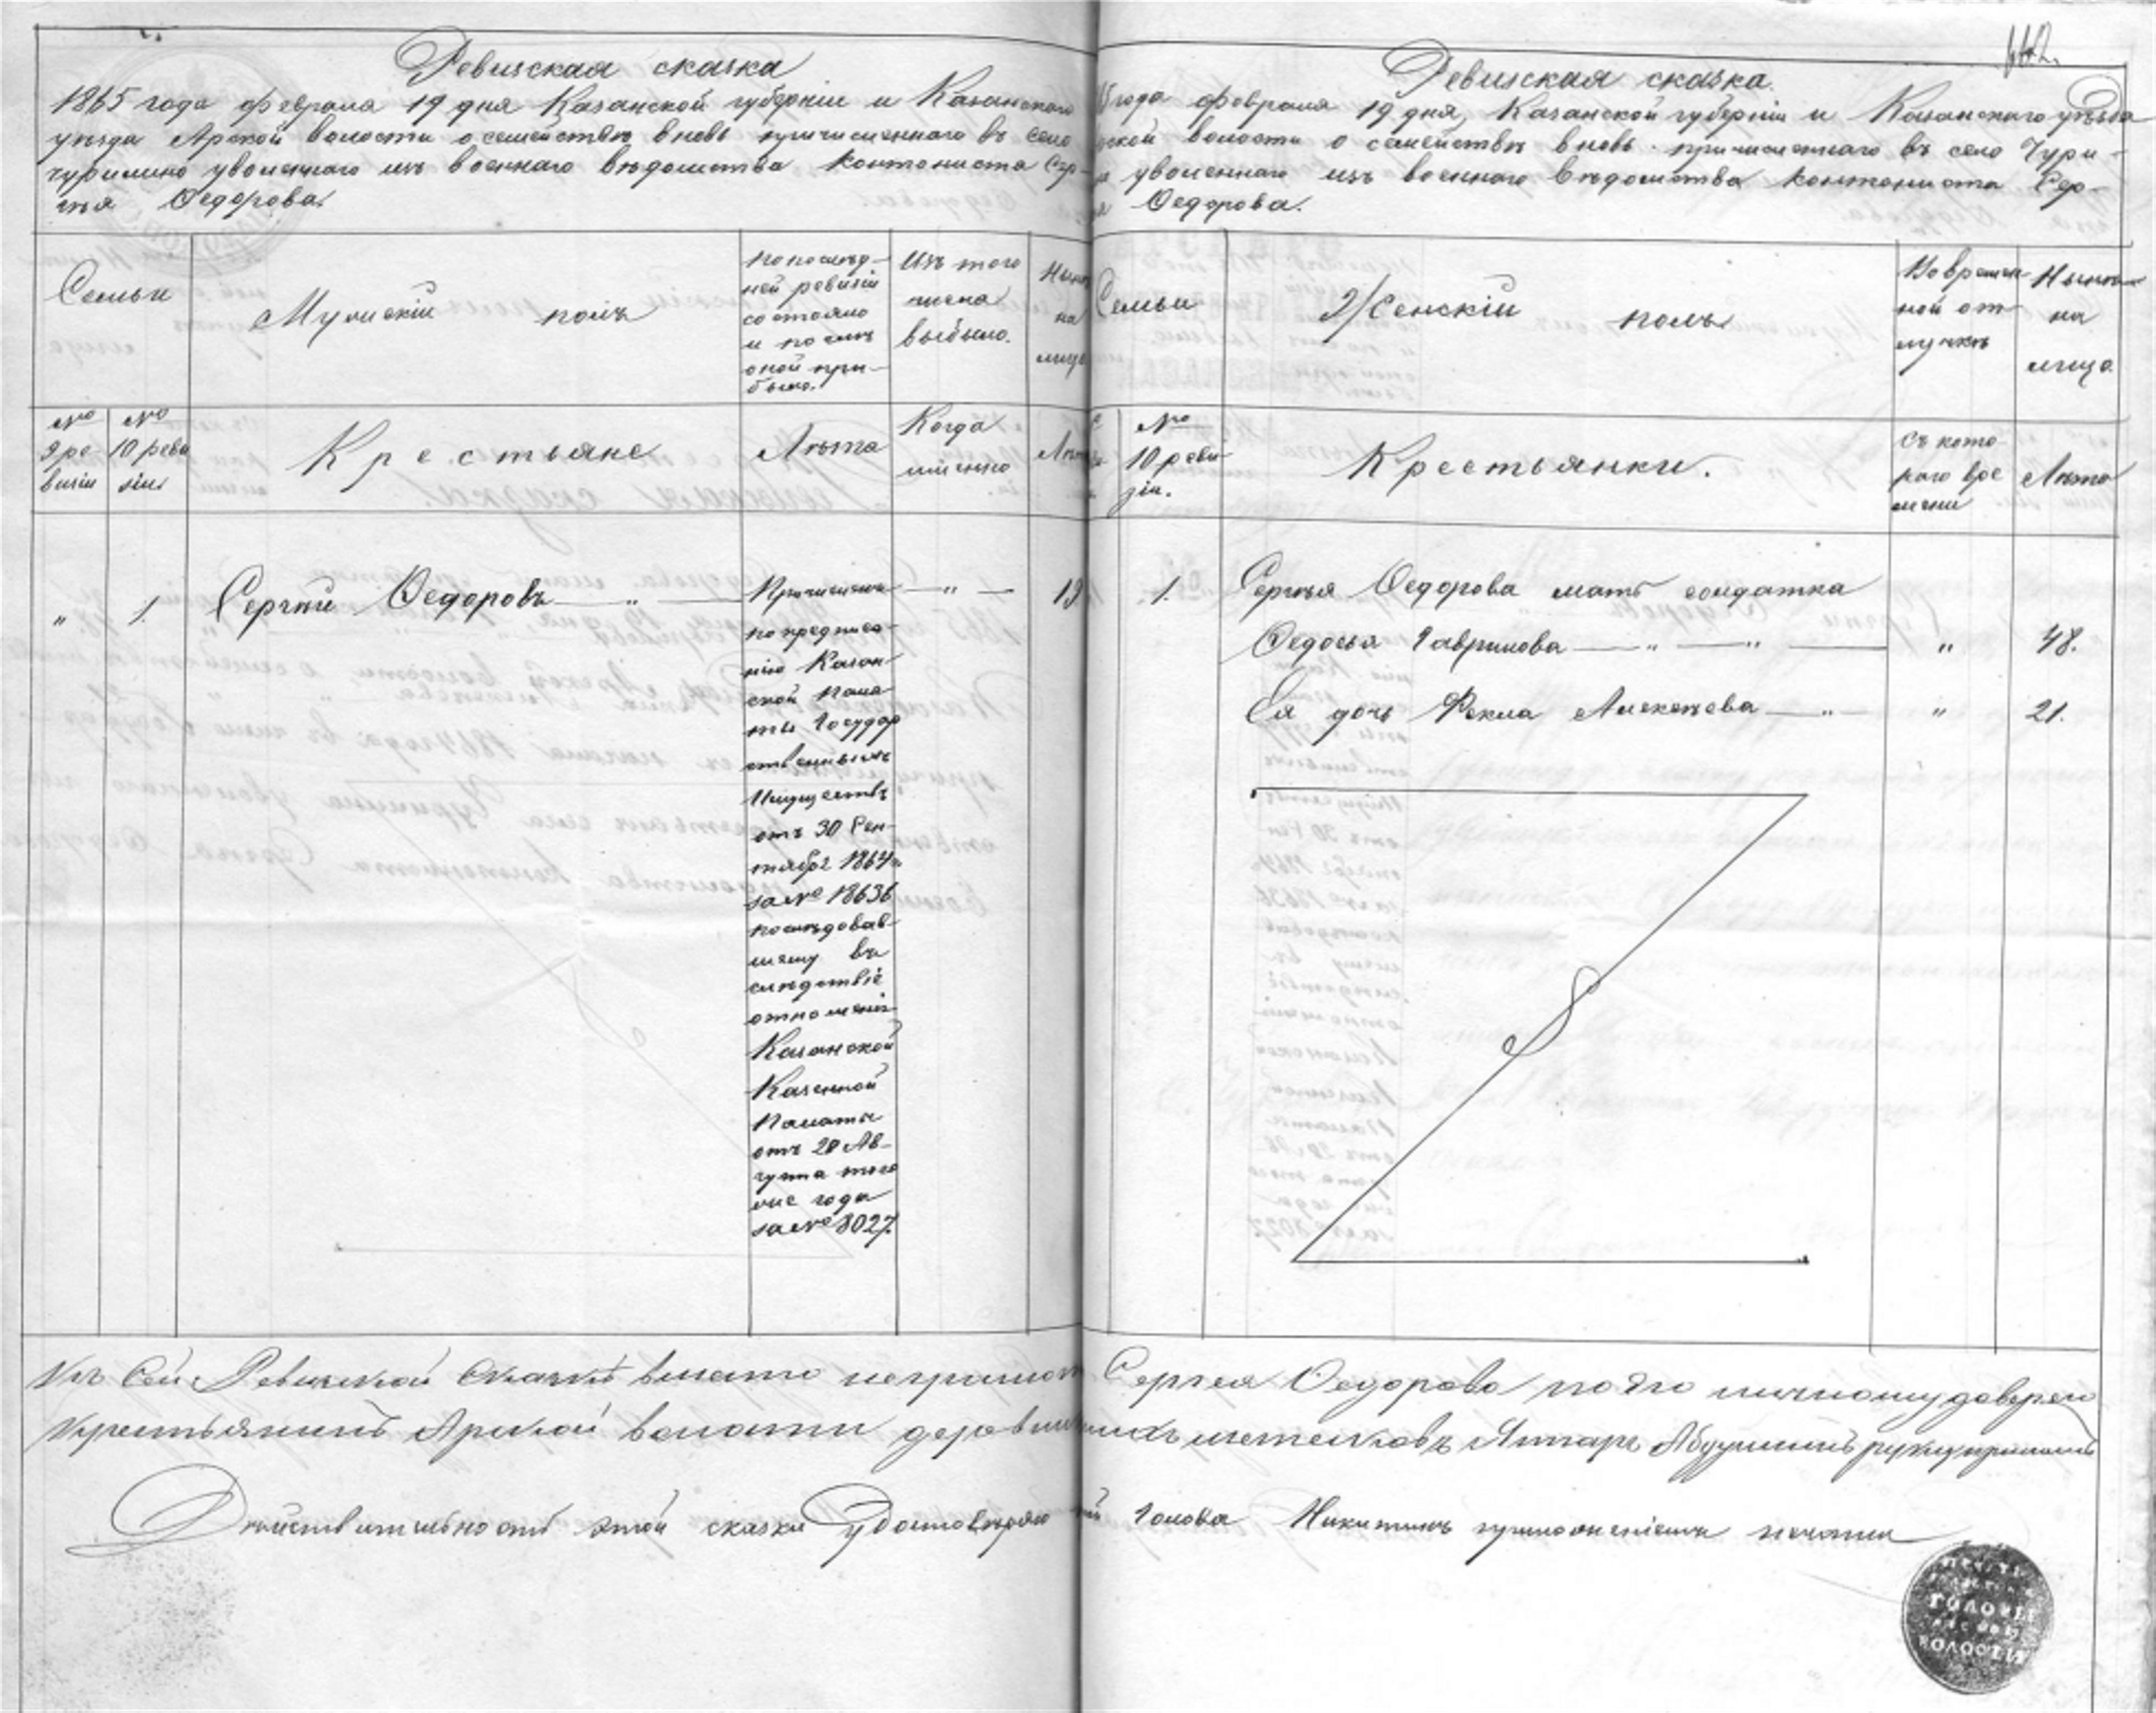 Ревизская сказка
1865 года февраля 19 дня Казанской губернiи и Казанскаго
уѣзда Арской волости о семействѣ вновь причисленнаго въ село
Чурилино уволеннаго изъ военнаго вѣдомства кантониста Сер-
гѣя Ѳедорова.
Семьи
Мужескiй полъ
По послѣд-
ней ревизiи
состояло
и послѣ
оной при-
было.
Изъ того
числа
выбыло.
Нынѣ
на
лицо
№
9 ре-
визiи
№
10 реви
зiи
Крестьяне
Лѣта
Когда
именно
Лѣта
"
1.
Сергѣй Ѳедоровъ — " —
Причисленъ
по предписа-
нiю Казан-
ской Пала-
ты Государ
ственныхъ
Имуществъ
отъ 30 Сен-
тября 1864 г.
за № 18636
послѣдовав-
шему въ
слѣдствiе
отношенiя
Казанской
Казенной
Палаты
отъ 28 Ав-
густа того
же года
за № 8027.
— " —
19
Ревизская сказка.
года февраля 19 дня, Казанской губернiи и Казанскаго уѣзда
ской волости о семействѣ вновь причисленнаго въ село Чури-
уволеннаго изъ военнаго вѣдомства кантониста Сер-
Ѳедорова.
Семьи
Женскiй полъ
Во времен-
ной от-
лучкѣ
Нынѣ
на
лицо
№
10 реви-
зiи.
Крестьянки.
Съ кото-
раго вре
мени
Лѣта
1.
Сергѣя Ѳедорова мать солдатка
Ѳедосья Гаврилова — " — " — " 48.
Ея дочь Фекла Алексѣева — " — " 21.
Къ сей Ревизской Сказкѣ вместо неграмот Сергея Ѳедорова по его личному доверею
Крестьянинъ Арской волости деревни Аптарь Абдулинъ руку приложилъ
Дѣйствительность этой сказки удостовѣряю Голова Никитинъ приложенiемъ печати
ПЕЧАТЬ
ГОЛОВЫ
ВОЛОСТИ